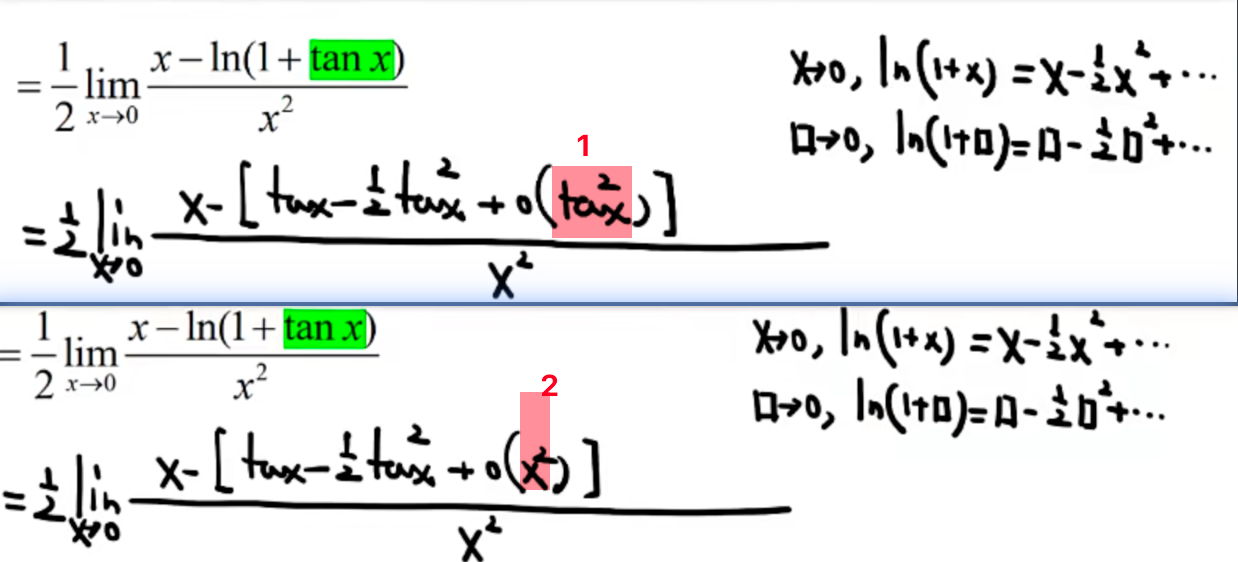 = 1/2 lim x→0 (x − ln(1 + tan x)) / x²
x→0, ln(1+x) = x − 1/2 x² + ⋯
□→0, ln(1+□) = □ − 1/2 □² + ⋯
1
= 1/2 lim x→0 (x − [tanx − 1/2 tan²x + o(tan²x)]) / x²
= 1/2 lim x→0 (x − ln(1 + tan x)) / x²
x→0, ln(1+x) = x − 1/2 x² + ⋯
□→0, ln(1+□) = □ − 1/2 □² + ⋯
2
= 1/2 lim x→0 (x − [tanx − 1/2 tan²x + o(x²)]) / x²